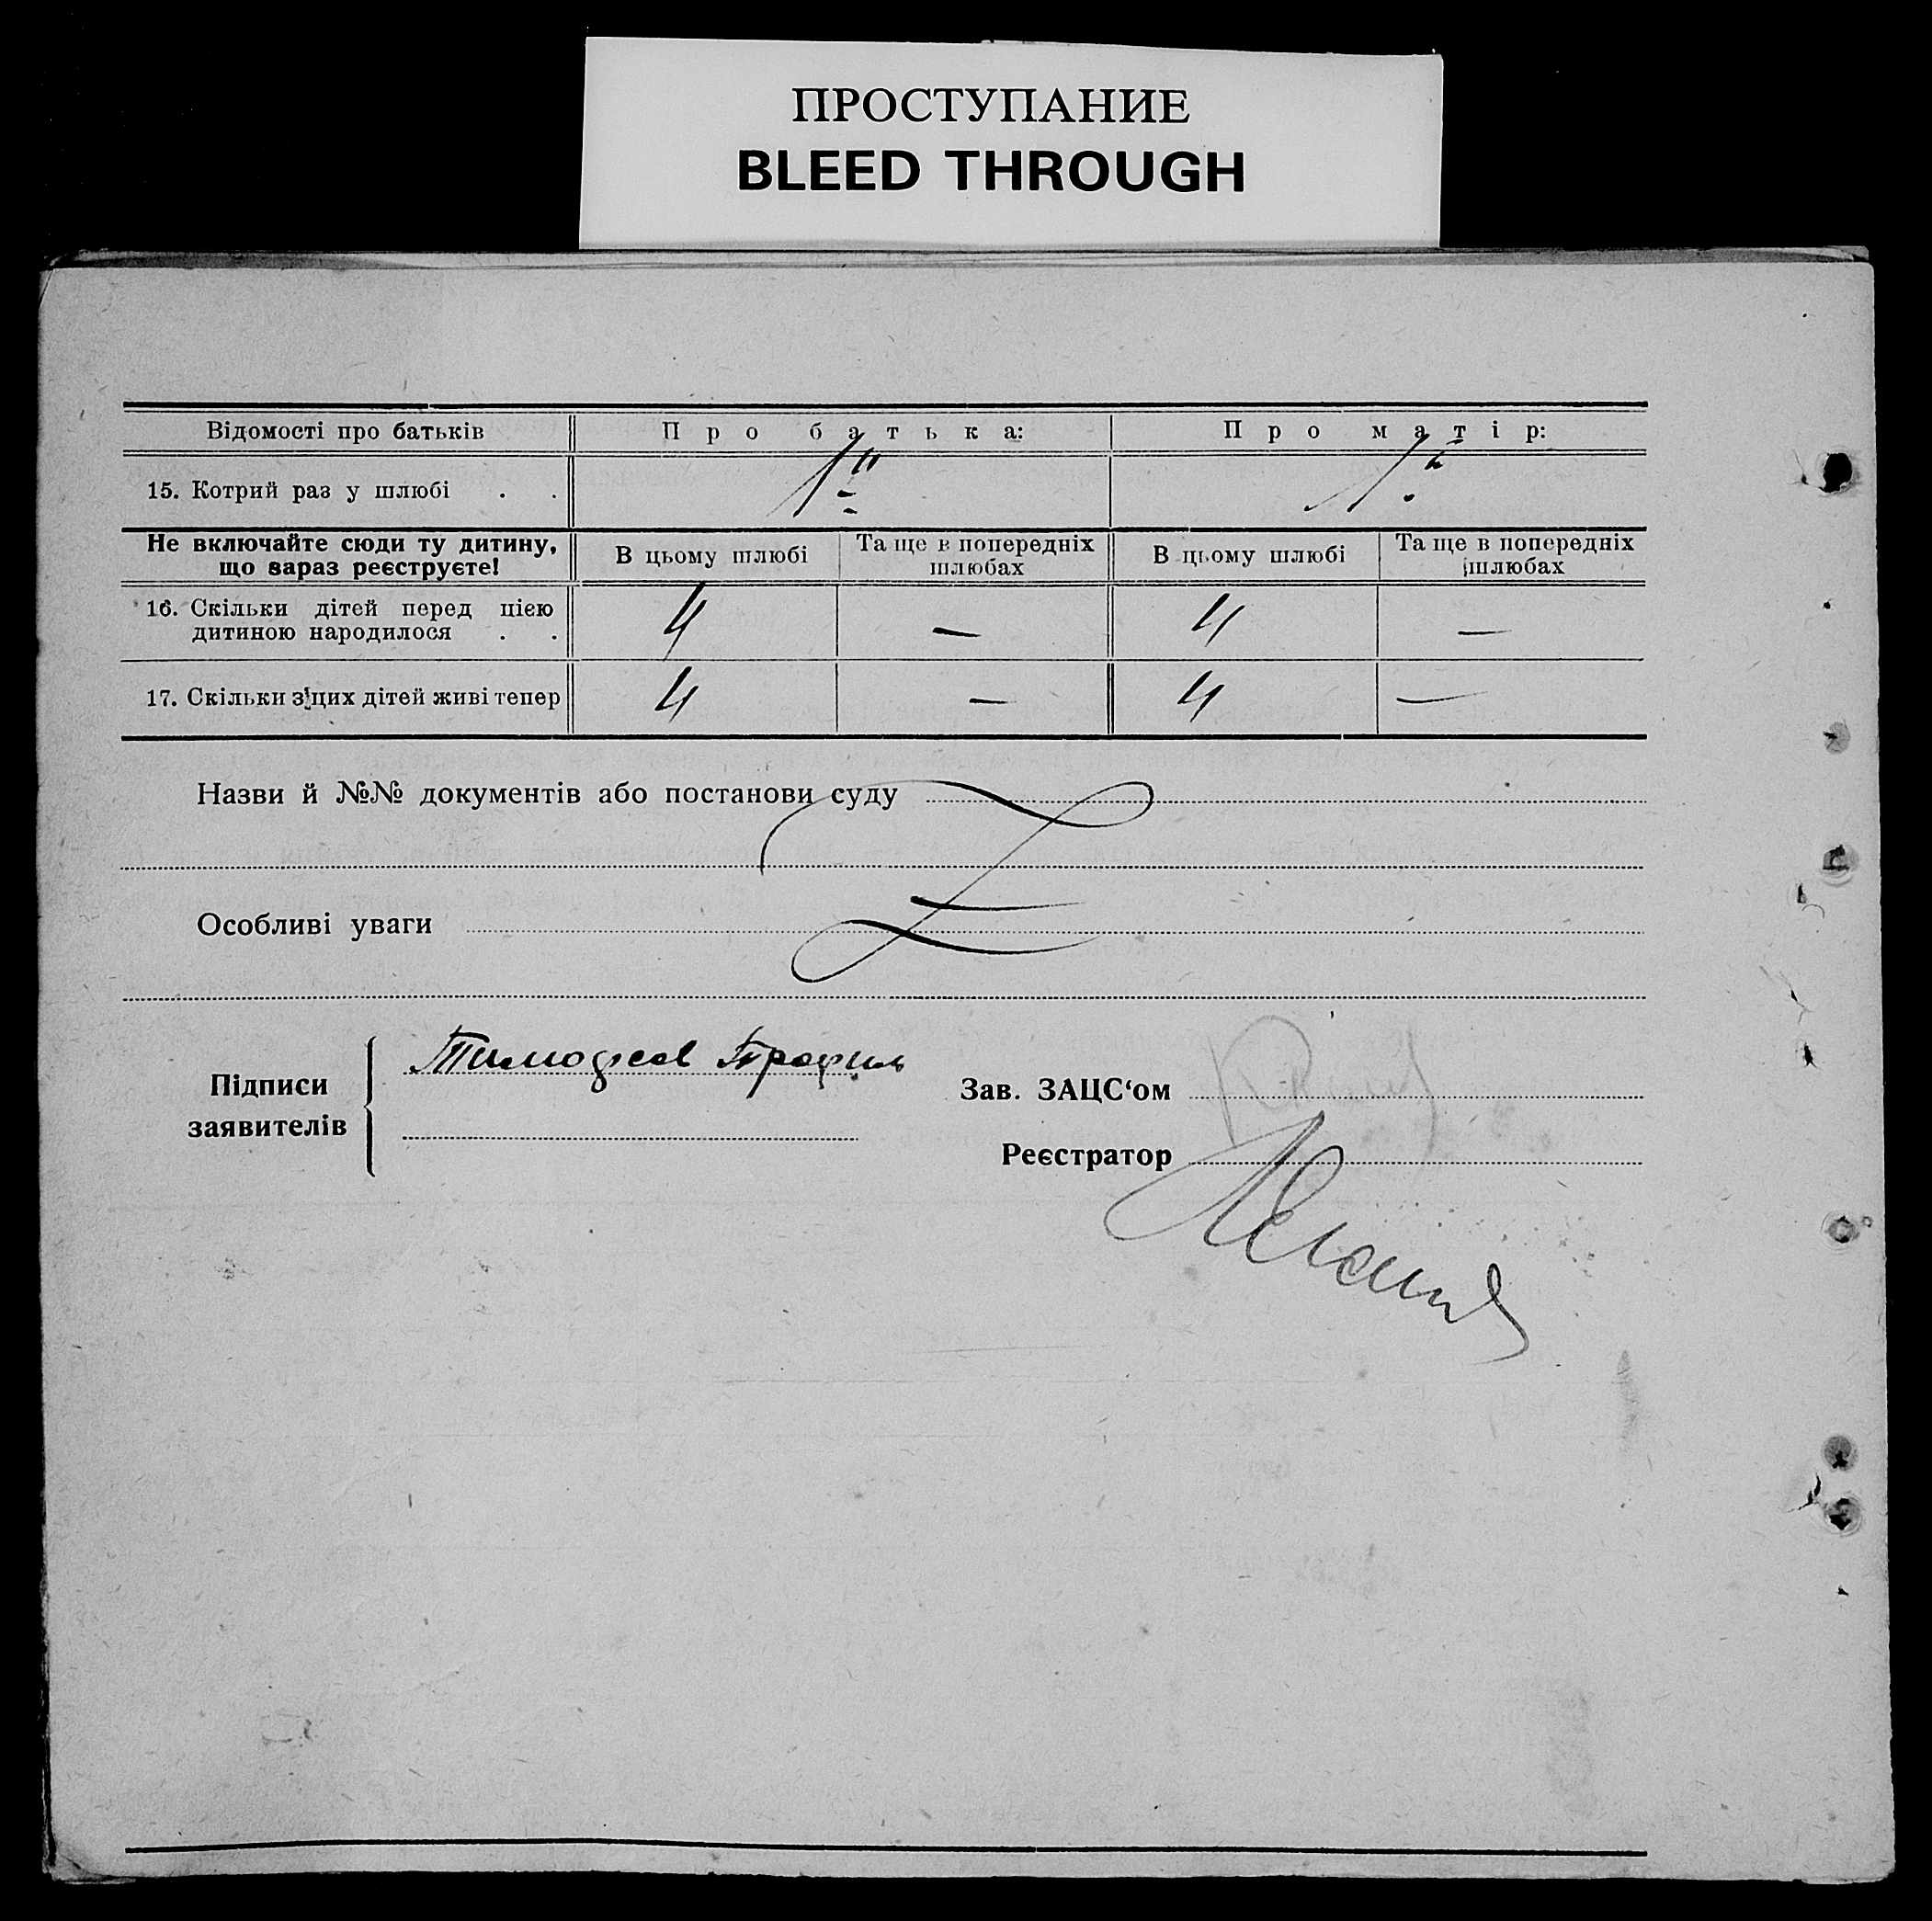 ПРОСТУПАНИЕ
BLEED THROUGH
Відомості про батьків Про батька: Про матір:
15. Котрий раз у шлюбі . . 1й 1й
Не включайте сюди ту дитину, що зараз реєструєте! В цьому шлюбі Та ще в попередніх шлюбах В цьому шлюбі Та ще в попередніх шлюбах
16. Скільки дітей перед цією
дитиною народилося . . 4 — 4 —
17. Скільки з цих дітей живі тепер 4 — 4 —
Назви й №№ документів або постанови суду
Особливі уваги
Підписи заявителів
Тимофеев Трофим
Зав. ЗАЦС‘ом
Реєстратор